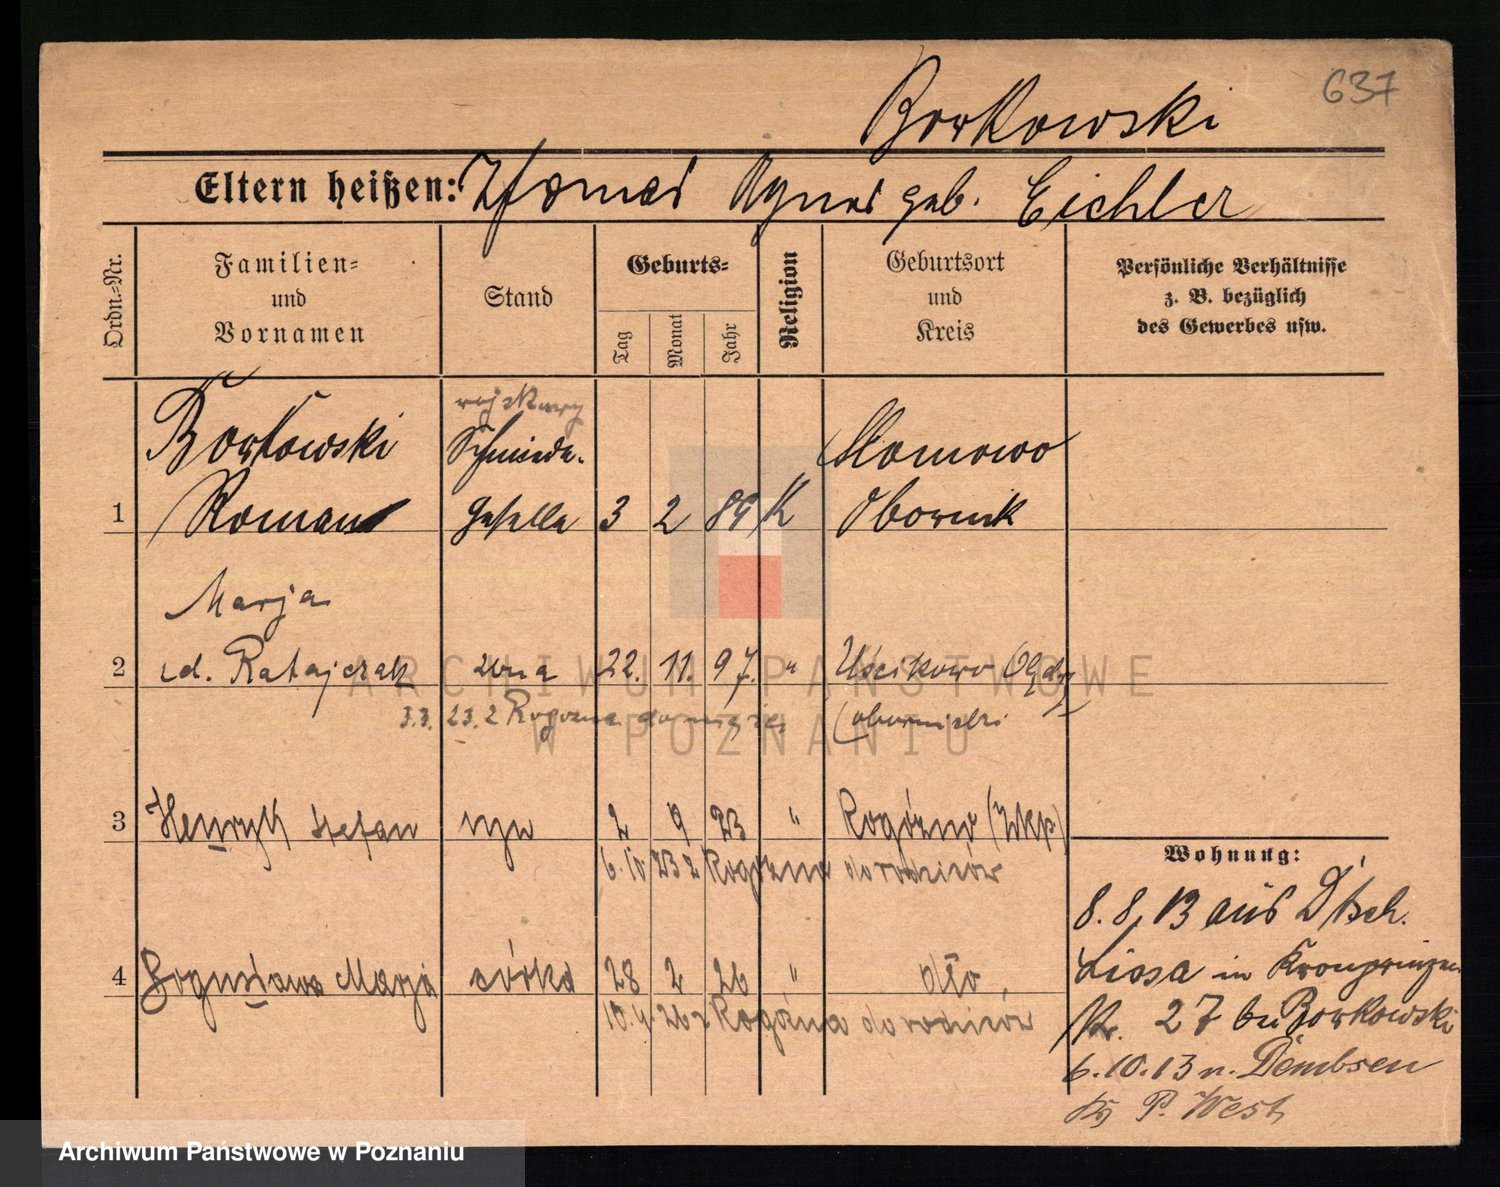 637
Borkowski
Eltern heißen: Thomas Agnes geb. Eichler
Ordn.-Nr.
Familien- und Vornamen
Stand
Geburts-
Tag
Monat
Jahr
Religion
Geburtsort und Kreis
Persönliche Verhältnisse z. B. bezüglich des Gewerbes usw.
Borkowski Schmiede- Słomowo
1 Roman Geselle 3 2 89 K Obornik
Marja
2 Ratajczak żona 22. 11. 97. "
3.3. 23. z Rogoźna
3 Henryk Stefan syn 2 9 23 " Rogoźno (Wkp)
6.10 23 z Rogoźna do rodziców
4 Bogusława Marja córka 28 2 26 " dto.
10.4. 26 z Rogoźna do rodziców
Wohnung:
8.8.13 aus Dtsch.
Lissa in Kronprinzen
Nr. 27 bei Borkowski
6.10.13 n. Dembsen
Kr. P. West
ARCHIWUM PAŃSTWOWE
W POZNANIU
Archiwum Państwowe w Poznaniu